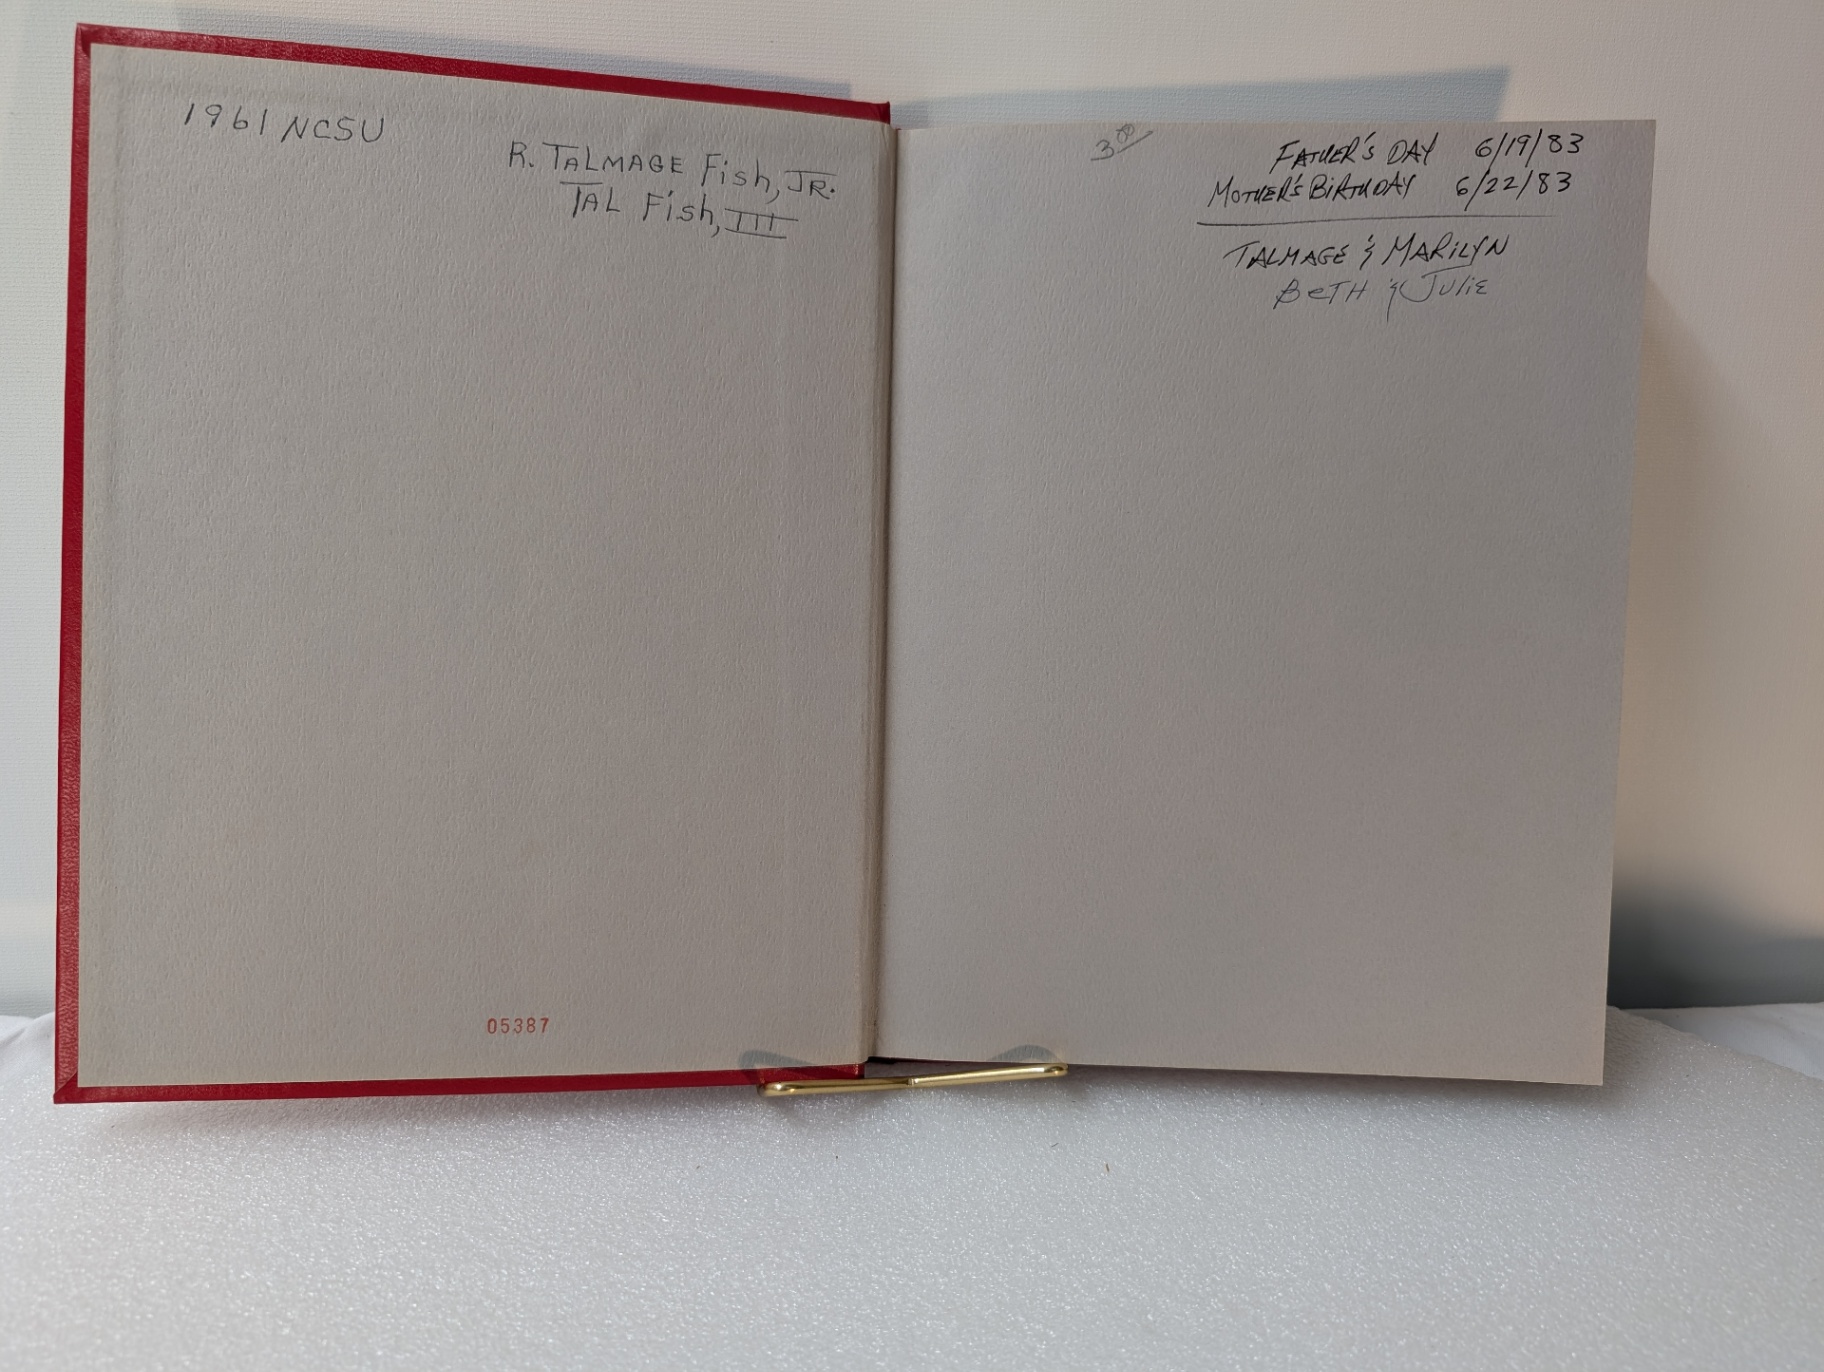 1961 NCSU
R. TALMAGE Fish, JR.
TAL Fish, III
05387
3⁰⁰
FATHER'S DAY 6/19/83
MOTHER'S BIRTHDAY 6/22/83
TALMAGE & MARILYN
BETH & JULIE